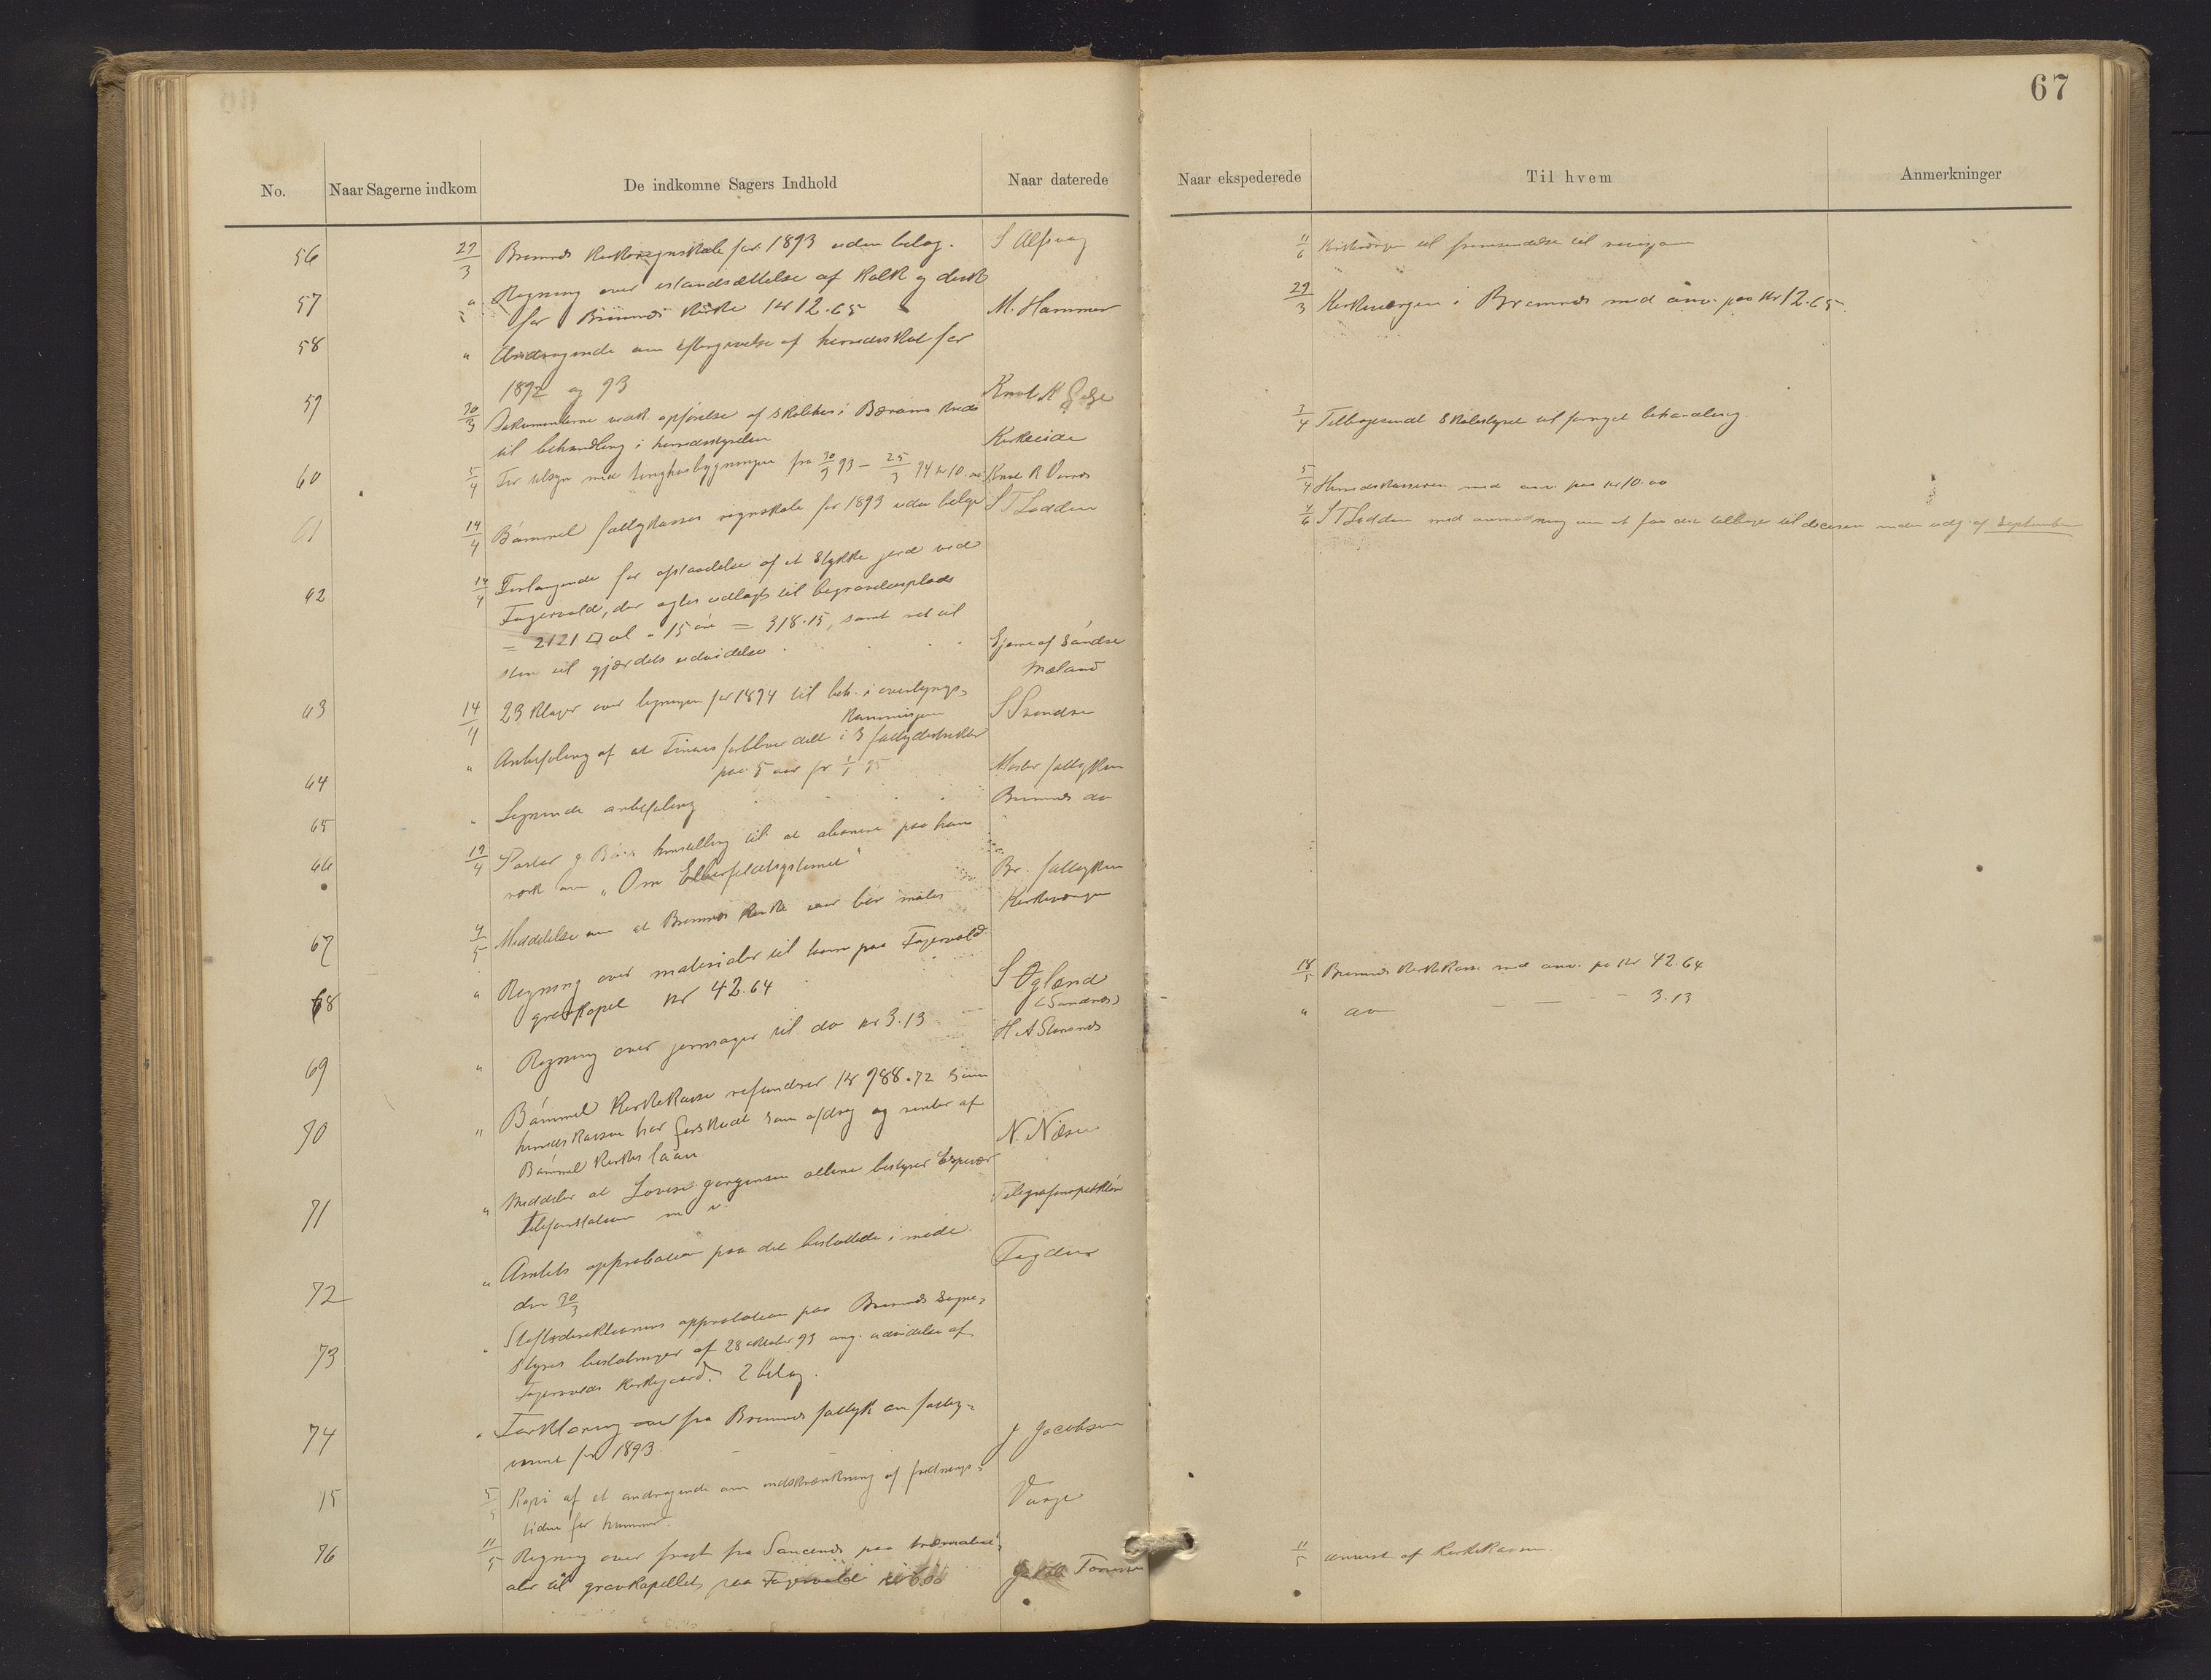 67
No. Naar Sagerne indkom De indkomne Sagers Indhold Naar daterede Naar ekspederede Til hvem Anmerkninger
56 29/3 Bremnes Kirkeregnskab for 1893 uden belag. S Alfsvag 11/6 Kirkevergen til fremsendelse til revisjon
57 " Regning over istandsættelse af Kalk og disk
for Bremnes Kirke Kr 12.65 M. Hammer 29/3 Kirkevergen i Bremnes med anv. paa Kr 12.65.
58 " Andragende om eftergivelse af herredsskat for
1892 og 93 Knut K
59 30/3 Dokumenterne vedk. opførelse af skolehus i Børøens Kreds 3/4 Tilbagesendt Skolestyret til fornyet behandling.
til behandling i herredsstyrelsen Kirkeeide
60 5/4 For tilsyn med tinghusbygningen fra 30/3 93 - 25/3 94 kr 10. Knut R 5/4 Herredskasseren med anv. paa Kr 10.00
61 14/4 Bømmel fattigkasses regnskab for 1893 uden belage S T Lodden 4/6 S T Lodden med anmodning om at faa det tilbage til decision inden udg. af September
62 14/4 Forlangende for afstaaelse af et stykke jord ved
Fagervold, der agtes udlagt til begravelsesplads
= 2121 □ al a 15 øre = 318.15, samt ret til
sten til gjærdets udvidelse Ejerne af Søndre
Mæland
63 14/4 23 klager over ligningen for 1894 til beh. i overligningskommisjon S Svendsen
64 " Anbefaling af at Finnaas forbliver delt i 3 fattigdistrikter
paa 5 aar fr 1/1 95 Moster fattigkom
65 " Lignende anbefaling Bremnes do
66 19/4 Pastor henstilling til at abonere paa hans
verk om "Om Elberfeldtsystemet" Br. fattigkom
67 4/5 Meddelelse om at Bremnes Kirke iaar bør males Kirkevergen
68 " Regning over materialer til taarn paa Fagervold
gravkapel Kr 42.64 S Øglænd
(Sandnes) 18/5 Bremnes Kirkekasse med anv. pa Kr 42.64
69 " Regning over jernsager til do Kr 3.13 H A Stensnes " do — — - 3.13
70 " Bømmel Kirkekasse refunderer Kr 988.72 som
herredskassen har forskudt som afdrag og renter af
Bømmel Kirkes laan N. Nilsen
71 " Meddeler at Lovise Jørgensen allene bestyrer Espevær
Telefonstation m v. Telegrafinspektør
72 " Amtets approbation paa det besluttede i møde
den 30/3 Fogden
73 " Stiftsdirektionens approbation paa Bremnes Sognestyres beslutninger af 28 oktober 93 ang. udvidelse af
Fagervolds Kirkegaard. 2 belag.
74 " Forklaring over fra Bremnes fattigk om fattigvæsenet for 1893 J Jacobsen
75 5/5 Kopi af et andragende om indskrænkning af fredningstiden for hummer. Vaage
76 11/5 Regning over fragt fra Sandnes paa træmaterialer til gravkapellet paa Fagervold Kr 6.00 Tønnesen 11/5 anvist af Kirkekassen